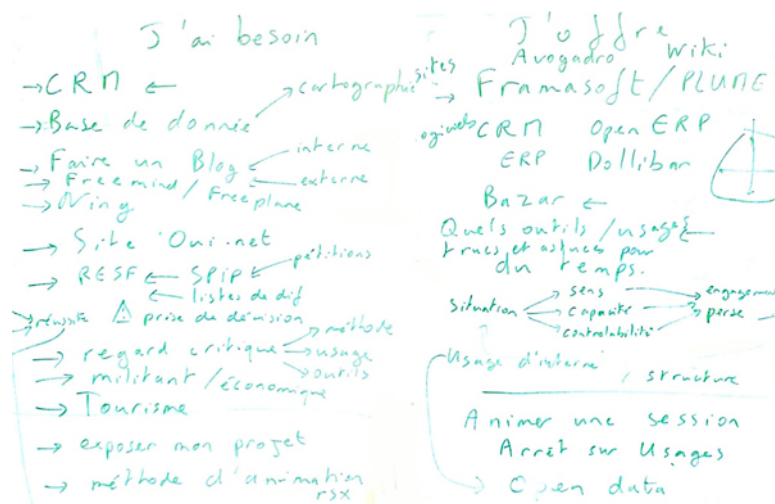 J'ai besoin
→ CRM ←
→ Base de donnée → cartographie
→ Faire un Blog ← interne
→ Freemind / Freeplane ← externe
→ Ning
→ Site Oui.net
→ RESF ← SPIP ← pétitions
← listes de dif
→ réussite ⚠ prise de démision
→ regard critique → méthode
→ usage
→ outils
→ militant / économique
→ Tourisme
→ exposer mon projet
→ méthode d'animation
rsx
J'offre
Avogadro Wiki
sites → Framasoft / PLUME
logiciels CRM Open ERP
ERP Dollibar
Bazar ←
Quels outils / usages ←
trucs et astuces pour
du temps.
Situation → sens → engagement
→ capacité → perse
→ controlabilité
Usage d'interne
/ structure
Animer une session
Arrêt sur Usages
→ Open data